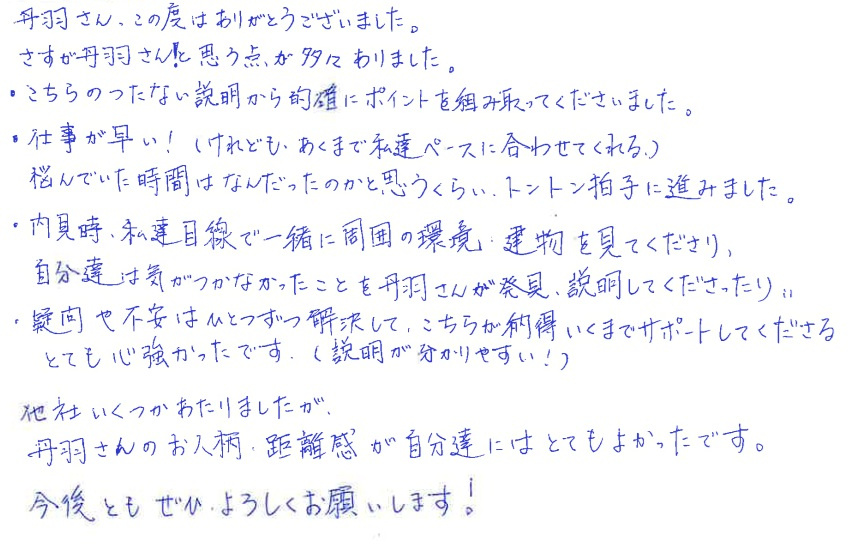 丹羽さん、この度はありがとうございました。
さすが丹羽さん!と思う点が多々ありました。
・こちらのつたない説明から的確にポイントを組み取ってくださいました。
・仕事が早い!(けれども、あくまで私達ペースに合わせてくれる。)
悩んでいた時間はなんだったのかと思うくらい、トントン拍子に進みました。
・内見時、私達目線で一緒に周囲の環境・建物を見てくださり、
自分達は気がつかなかったことを丹羽さんが発見、説明してくださったり、、
・疑問や不安はひとつずつ解決して、こちらが納得いくまでサポートしてくださる
とても心強かったです。(説明が分かりやすい!)
他社いくつかあたりましたが、
丹羽さんのお人柄・距離感が自分達にはとてもよかったです。
今後ともぜひ、よろしくお願いします!